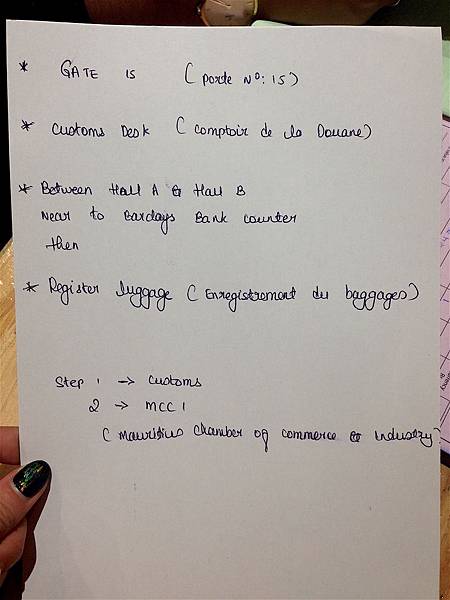 * GATE 15 (Porte N°: 15)
* Customs Desk (Comptoir de la Douane)
* Between Hall A & Hall B
Near to Barclays Bank counter
then
* Register luggage (Enregistrement du baggages)
Step 1 → Customs
2 → MCCI
(Mauritius Chamber of Commerce & Industry)